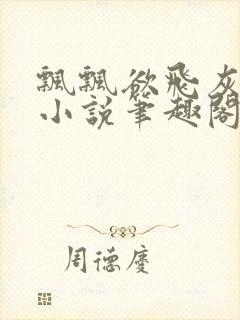 飄飄欲飛灰
小說筆趣閣
周德慶